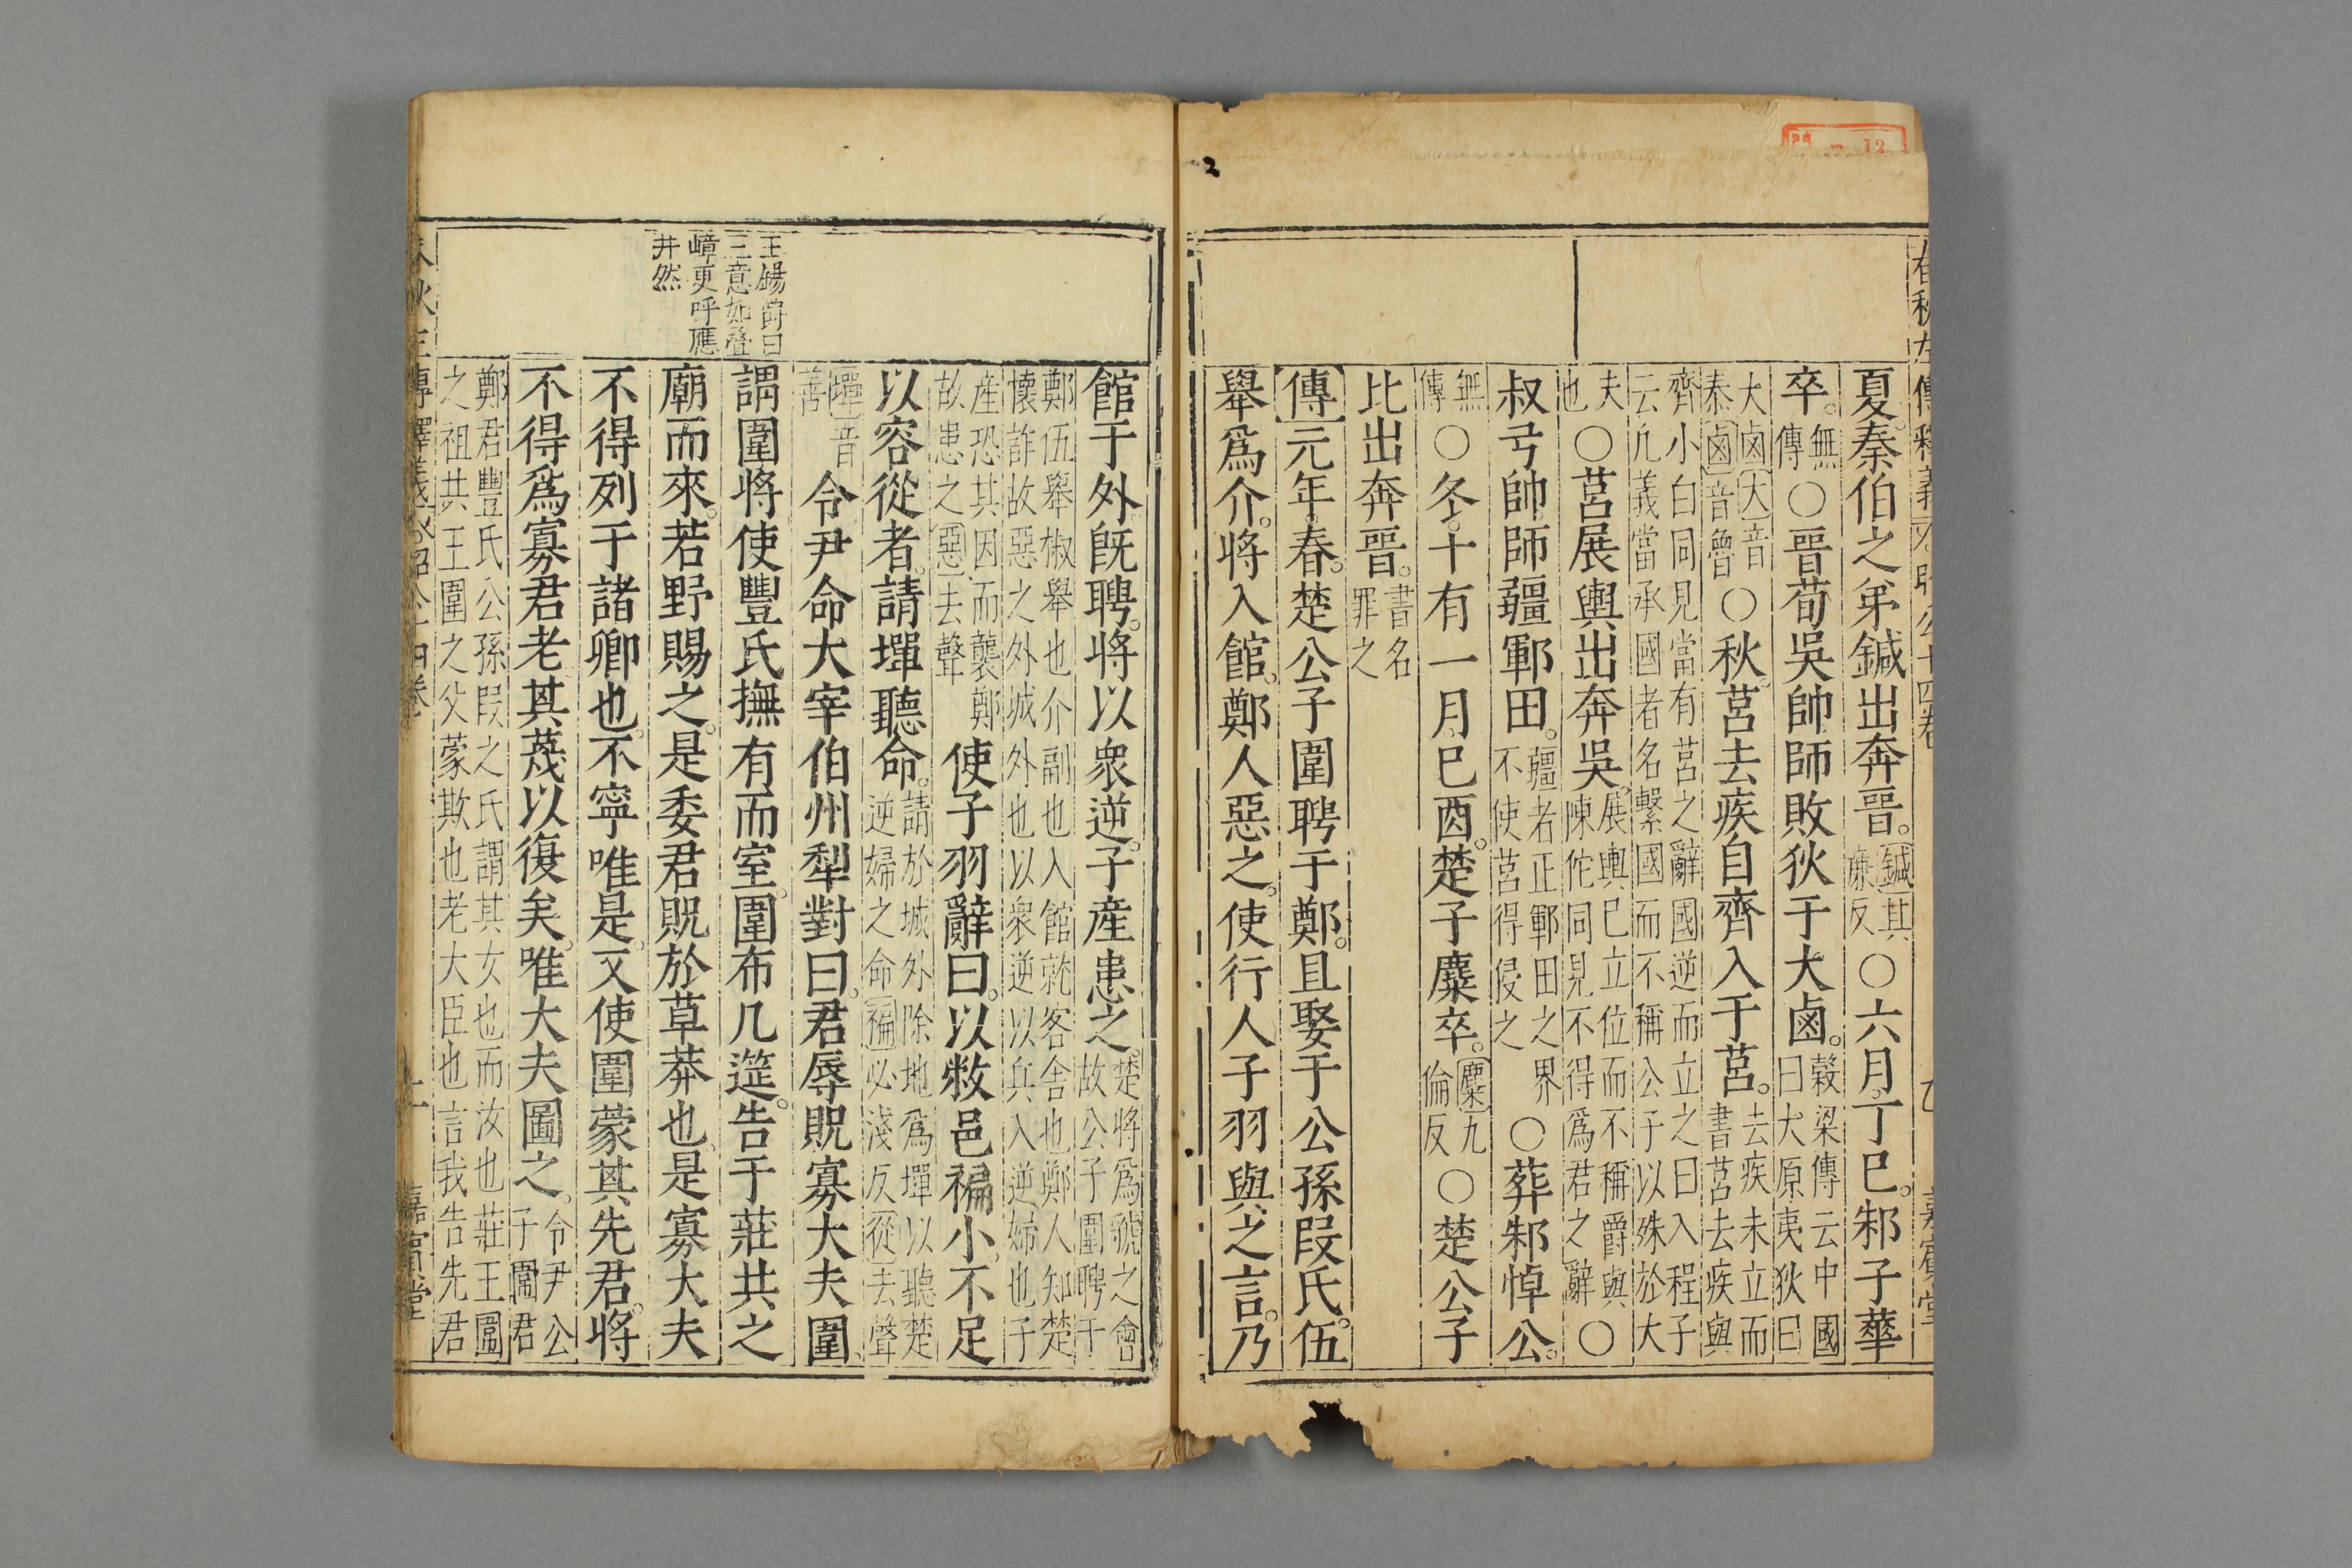 夏秦伯之弟鍼出奔晉。鍼其廉反○六月丁巳。邾子華
卒。無傳○晉荀吳帥師敗狄于大鹵。穀梁傳云中國曰大原夷狄曰
大鹵大音泰鹵音魯○秋。莒去疾自齊入于莒。去疾未立而書莒去疾與
齊小白同見當有莒之辭國逆而立之曰入程子云凡義當承國者名繫國而不稱公子以殊於大
夫也○莒展輿出奔吳。展輿已立位而不稱爵與陳佗同見不得爲君之辭○
叔弓帥師疆鄆田。疆者正鄆田之界不使莒得侵之○葬邾悼公。
無傳○冬。十有一月。己酉。楚子麇卒。麇九倫反○楚公子
比出奔晉。書名罪之
傳元年。春。楚公子圍聘于鄭。且娶于公孫段氏。伍
舉爲介。將入館。鄭人惡之。使行人子羽與之言。乃
館于外。旣聘。將以衆逆。子産患之。楚將爲虢之會故公子圍聘于
鄭伍舉椒舉也介副也入館就客舍也鄭人知楚懷詐故惡之外城外也以衆逆以兵入逆婦也子
産恐其因而襲鄭故患之惡去聲使子羽辭曰。以敝邑褊小。不足
以容從者。請墠聽命。請於城外除地爲墠以聽楚逆婦之命褊必淺反從去聲
墠音善令尹命大宰伯州犁對曰。君辱貺寡大夫圍。
謂圍將使豐氏撫有而室。圍布几筵。告于莊共之
廟而來。若野賜之。是委君貺於草莽也。是寡大夫
不得列于諸卿也。不寧唯是。又使圍蒙其先君。將
不得爲寡君老。其蔑以復矣。唯大夫圖之。令尹公子圍君
鄭君豐氏公孫段之氏謂其女也而汝也莊王圍之祖共王圍之父蒙欺也老大臣也言我告先君
王錫爵曰
三意如疊
嶂更呼應
井然